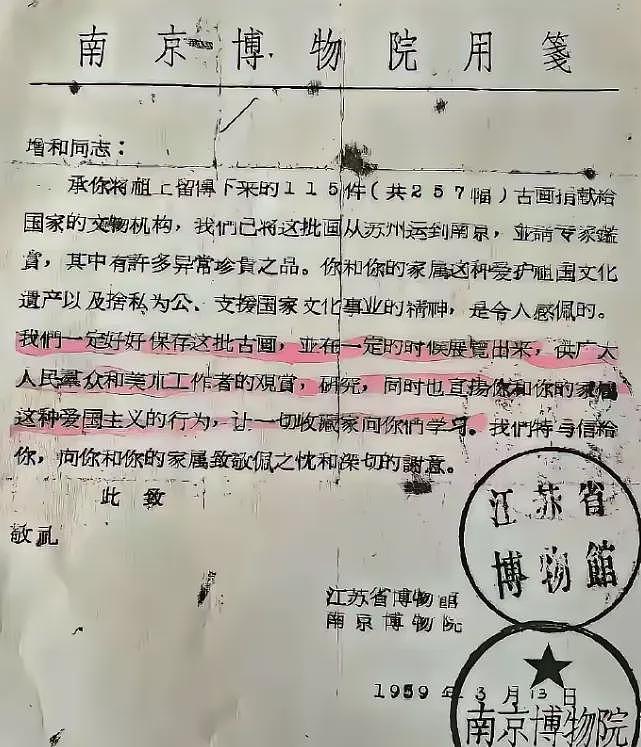 南京博物院用笺
增和同志：
承你将祖上留傳下来的115件(共257幅)古画捐献给
国家的文物机构，我們已将这批画从苏州运到南京，並請专家鑑
賞，其中有許多异常珍貴之品。你和你的家属这种爱护祖国文化
遺产以及捨私为公、支援国家文化事业的精神，是令人感佩的。
我們一定好好保存这批古画，並在一定的时候展覽出来，供广大
人民羣众和美朮工作者的观賞，研究，同时也直揚你和你的家属
这种爱国主义的行为，让一切收藏家向你們学习。我們特与信給
你，向你和你的家属致敬佩之忱和深切的謝意。
此致
敬礼
江苏省博物館
南京博物院
1959年3月13日
江苏省
博物館
南京博物院